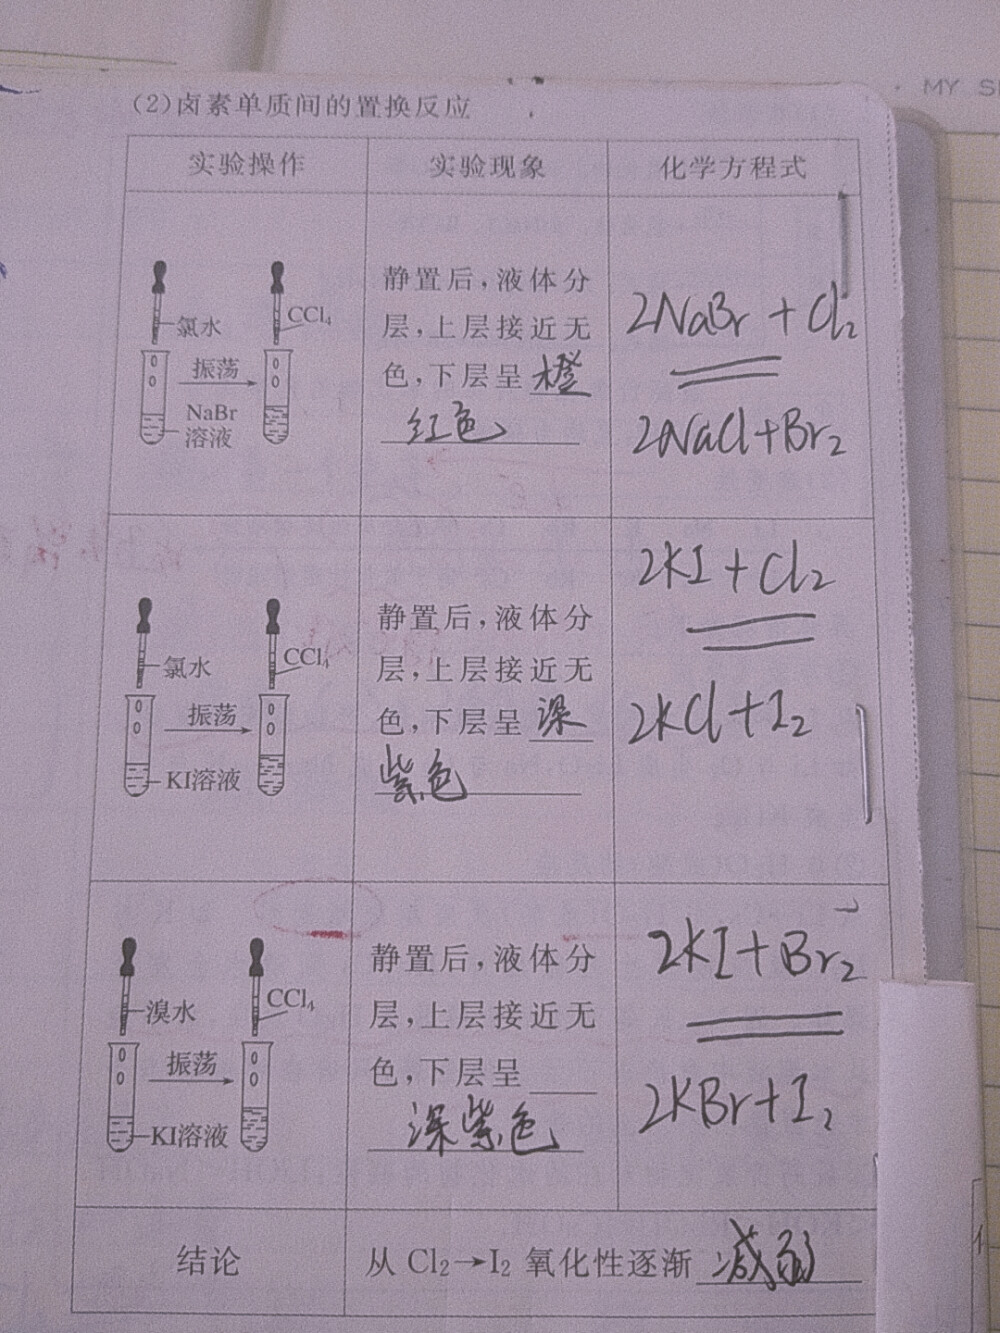 MY S
(2)卤素单质间的置换反应
实验操作 实验现象 化学方程式
氯水
CCl₄
振荡
NaBr
溶液
静置后,液体分
层,上层接近无
色,下层呈 橙
红色
2NaBr + Cl₂
══
2NaCl+Br₂
氯水
CCl₄
振荡
KI溶液
静置后,液体分
层,上层接近无
色,下层呈 深
紫色
2KI + Cl₂
══
2KCl+I₂
溴水
CCl₄
振荡
KI溶液
静置后,液体分
层,上层接近无
色,下层呈
深紫色
2KI+Br₂
══
2KBr+I₂
结论 从 Cl₂→I₂ 氧化性逐渐 减弱